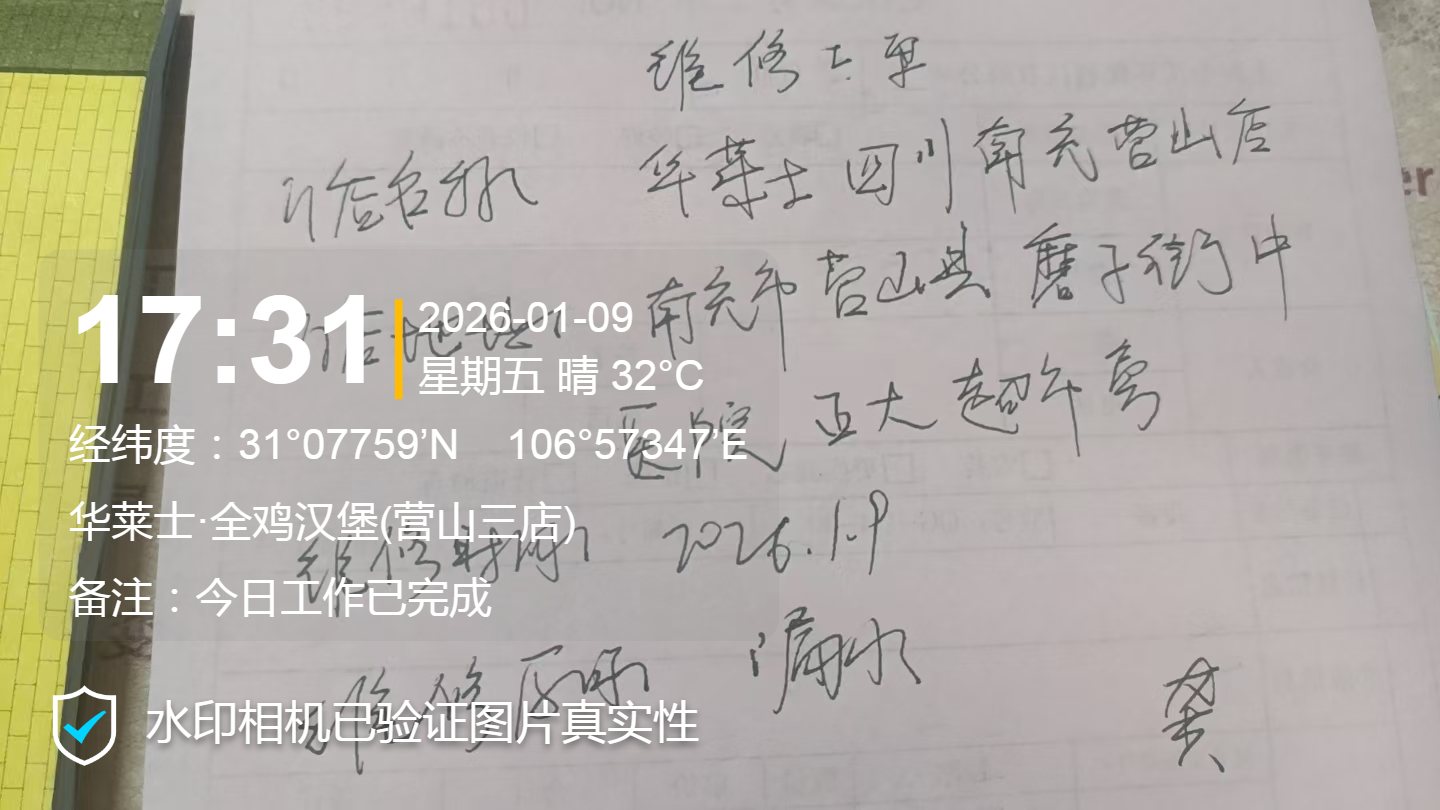 维修工单
门店名称 华莱士四川南充营山店
门店地址: 南充市营山县磨子街中
医院正大超市旁
维修时间: 2026.1.9
维修原因 漏水
17:31
2026-01-09
星期五 晴 32°C
经纬度：31°07759’N 106°57347’E
华莱士·全鸡汉堡(营山三店)
备注：今日工作已完成
水印相机已验证图片真实性